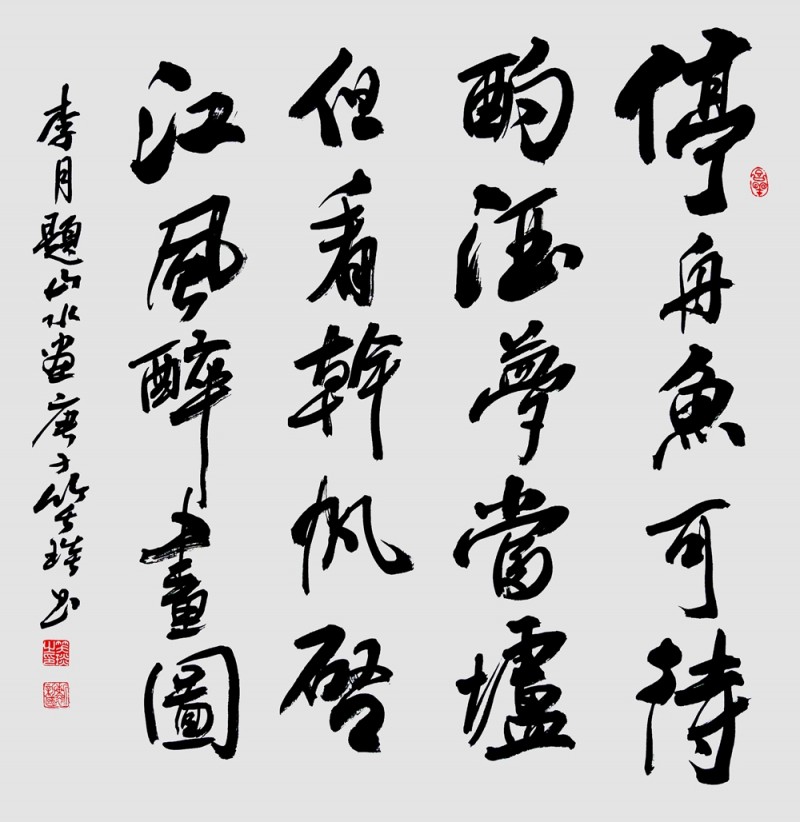 停舟魚可待
酌酒夢當壚
但看幹帆啓
江風醉畫圖
李月題山水畫庚子书